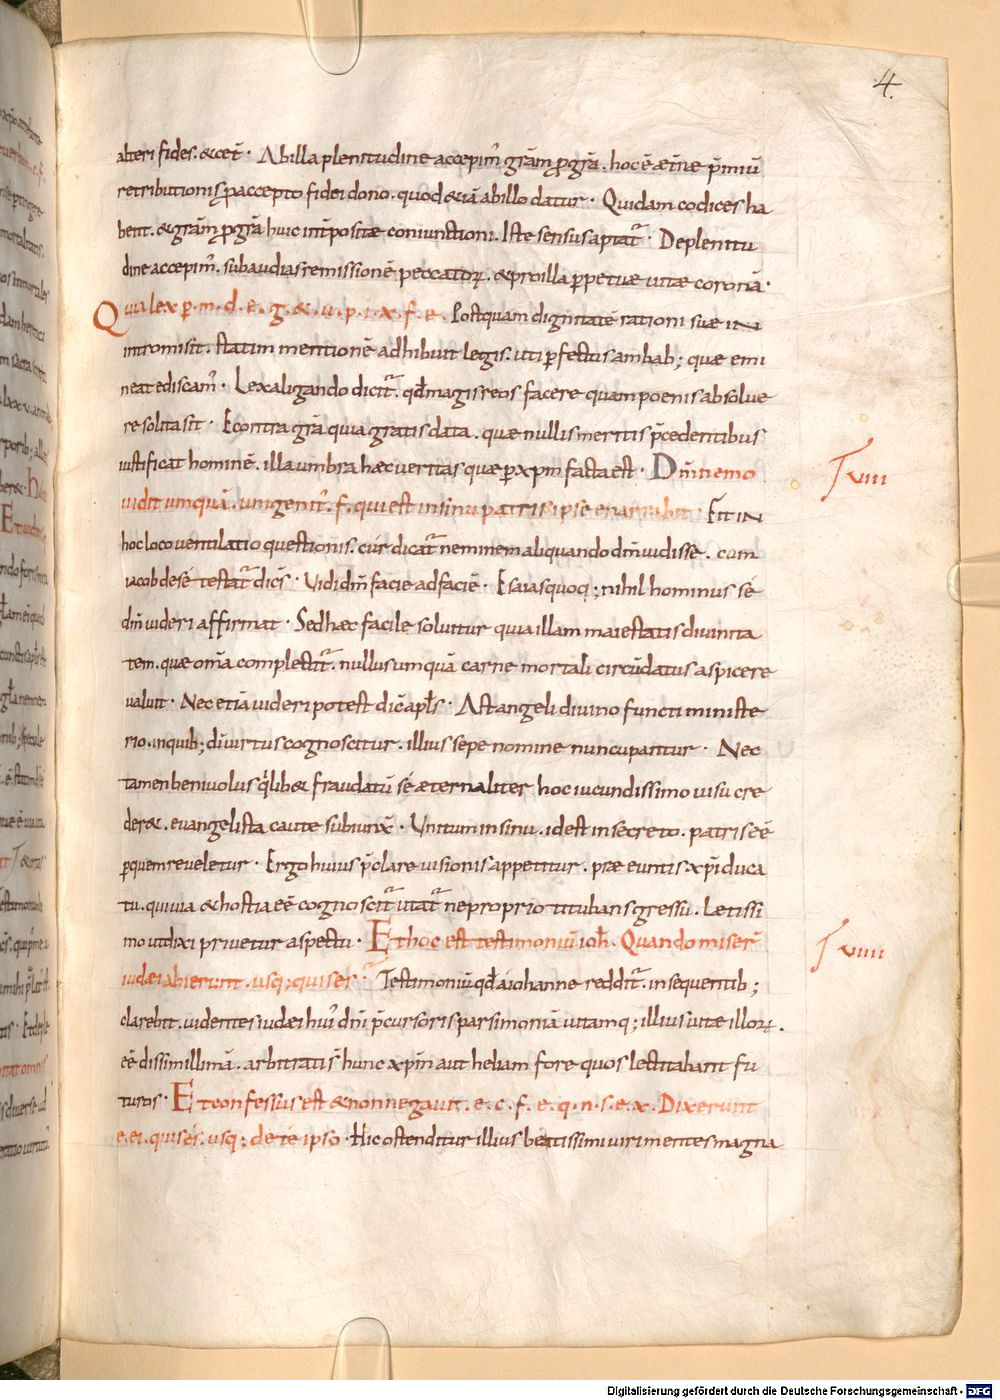 4.
alteri fides. &cet̄· Ab illa plenitudine accepim᷒ grām p̱ grā. hoc ē æt̄næ p̄miū
retributionis p̱ accepto fidei dono. quod &iā ab illo datur· Quidam codices ha
bent. & grām p̱ grā huic int̄positæ coniunctioni. Iste sensus aptat᷒· De plenitu
dine accepim᷒. subaudias remissionē peccatoꝝ. & pro illa ꝑpetuæ uitæ coronā·
Quia lex p. m. d. e. g. & u. p. i. x. f. e. Postquam dignitatē rationi suæ in
intromisit. statim mentionē adhibuit legis. uti ꝑfectius ambab; quæ emi
neat ediscam᷒· Lex a ligando dicit᷒. qđ magis reos facere quam poenis absolue
re solita sit· Econtra grā quia gratis data. quæ nullis meritis p̄cedentibus
iustificat hominē. illa umbra hæc ueritas quæ ꝑ xp̄m facta est· Dm̄ nemo
uidit umquā. unigenit᷒. f. qui est in sinu patris ipse enarrabit· Fit in
hoc loco uentilatio questionis. cur dicat᷒ neminem aliquando dm̄ uidisse. cum
iacob de sē testat᷒ dics̄· Uidi dm̄ facie ad faciē· Esaias quoq; nihilhominus sē
dm̄ uideri affirmat· Sed hæc facile soluitur quia illam maiestatis diuinita
tem. quæ omā complectit᷒. nullus umquā carne mortali circūdatus aspicere
ualuit· Nec etiā uideri potest dic̄ apl̄s· Ast angeli diuino functi ministe
rio. in quib; di uirtus cognoscitur. illius sepe nomine nuncupantur· Nec
tamen beniuolus q̇lib& fraudatū sē æternaliter hoc iucundissimo uisu cre
der&. euangelista caute subiunx̄· Unitum in sinu. id est in secreto. patris eē
ꝑ quem reueletur· Ergo huius p̄claræ uisionis appetitur. præeuntis xp̄i duca
tu. qui uia & hostia eē cognoscit᷒ utat᷒ ne proprio titubans gressu. Letissi
mo uidaci priuetur aspectu· Et hoc est testimoniū ioh̄. Quando miser̄
iudei abierunt. usq; qui ser· Testimoniū qđ a iohanne reddit᷒. in sequentib;
clarebit. uidentes iudæi hui᷒ dn̄i p̄cursoris parsimoniā uitamq; illius uitæ illoꝝ.
eē dissimillimā. arbitratis̄ hunc xp̄m aut heliam fore quos lectitabant fu
turos· Et confessus est & non negauit. e. c. f. e. q. n. s. e. x. Dixerunt
e. ei. qui es. usq; de te ipso· Hic ostenditur illius beatissimi uiri mentes magna
T xuiii
T xuiiii
Digitalisierung gefördert durch die Deutsche Forschungsgemeinschaft - DFG